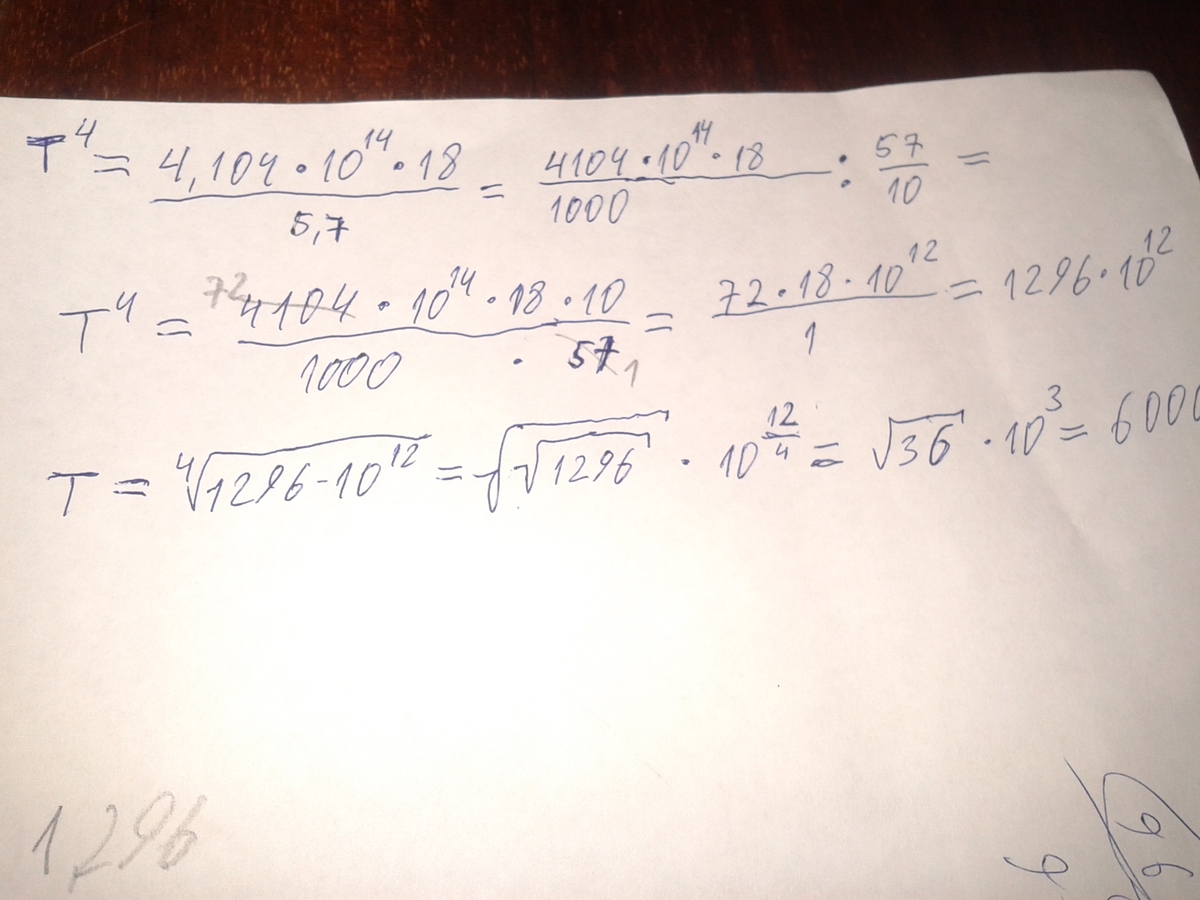 T⁴ = 4,104 · 10¹⁴ · 18 / 5,7 = 4104 · 10¹⁴ · 18 / 1000 : 57 / 10 =
T⁴ = 72 4104 · 10¹⁴ · 18 · 10 / 1000 · 57 1 = 72 · 18 · 10¹² / 1 = 1296 · 10¹²
T = ⁴√(1296 · 10¹²) = √(√1296) · 10^(12/4) = √36 · 10³ = 6000
1296